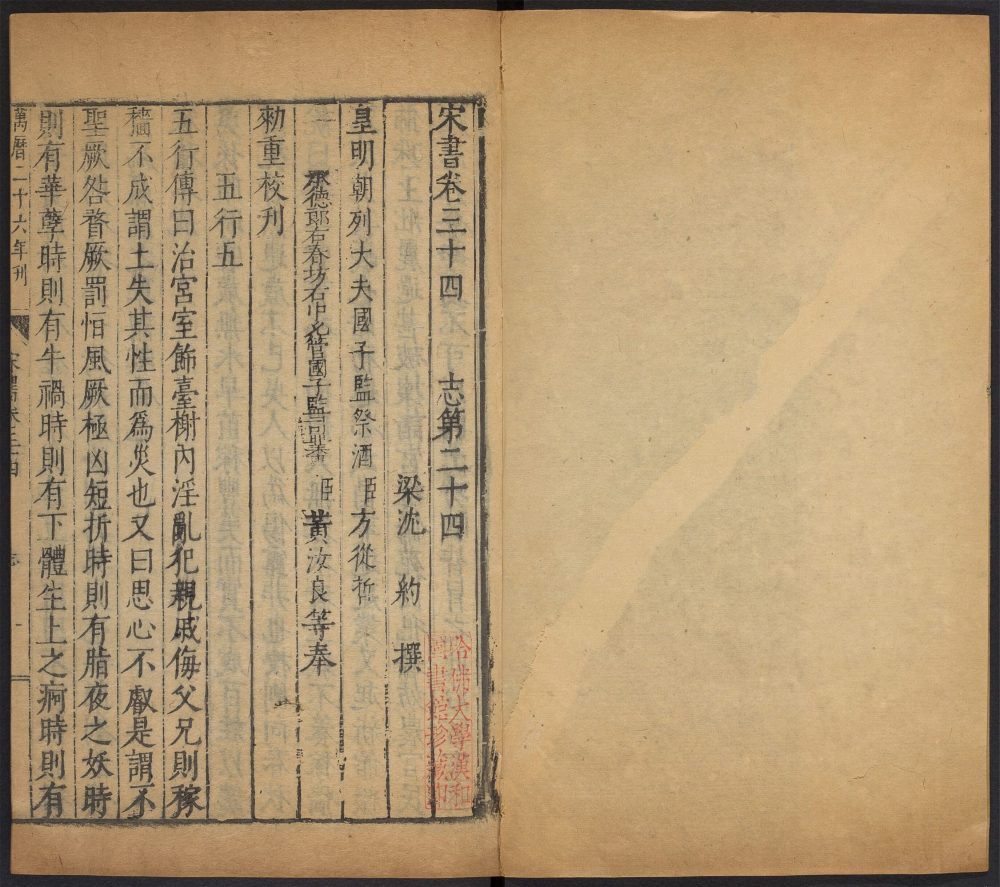 宋書卷三十四 志第二十四
梁沈約 撰
皇明朝列大夫國子監祭酒臣方從哲
承德郎右春坊右中允管國子監司業臣黃汝良等奉
勑重校刊
五行五
五行傳曰治宮室飾臺榭內淫亂犯親戚侮父兄則稼
穡不成謂土失其性而爲災也又曰思心不叡是謂不
聖厥咎瞀厥罰恒風厥極凶短折時則有脂夜之妖時
則有華孽時則有牛禍時則有下體生上之痾時則有
萬曆二十六年刊
宋書卷三十四
志
一
哈佛大學漢和
圖書館珍藏印